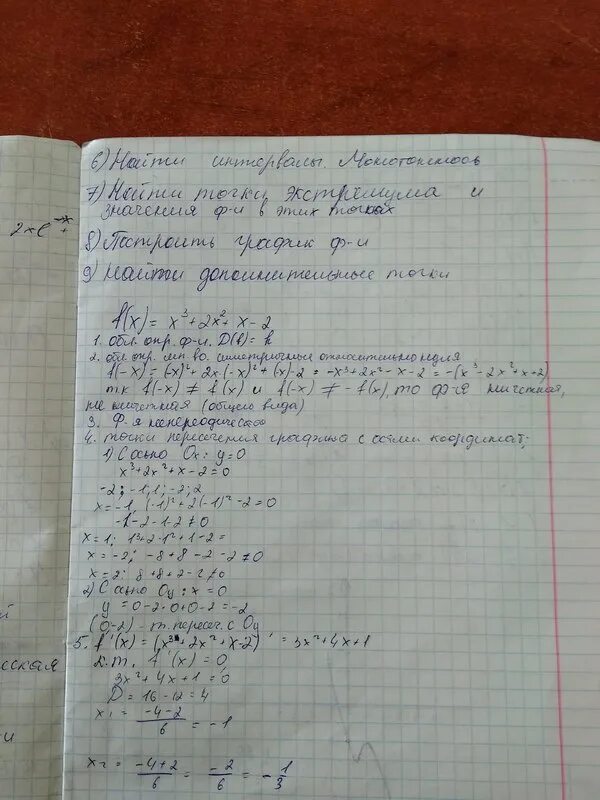 2xe^-x
6) Найти интервалы. Монотонность
7) Найти точки экстримума и
значения ф-и в этих точках
8) Построить график ф-и
9) Найти дополнительные точки
f(x) = x³+2x²+x-2
1. обл. опр. ф-и. D(f) = R
2. обл. опр. мн-во. симетричное относительно нуля
f(-x) = (-x)³+ 2x·(-x)²+(x)-2 = -x³+2x²-x-2 = -(x³-2x²+x+2)
т.к f(-x) ≠ f(x) и f(-x) ≠ -f(x), то ф-я
не (общего вида)
3. Ф-я непереодическая
4. точки пересечения графика с осями координат;
1) С осью Ox: y=0
x³+2x²+x-2=0
-2; -1; 1; -2; 2
x=-1, (-1)²+2(-1)²-2=0
-1-2-1-2≠0
x=1; 1³+2·1²+1-2=
x=-2; -8+8-2-2≠0
x=2; 8+8+2-2≠0
2) С осью Oy: x=0
y = 0-2·0+0-2=-2
(0-2) - т. пересеч. с Oy
5. f'(x) = (x³+2x²+x-2)' = 3x²+4x+1
к.т. f'(x) = 0,
3x²+4x+1=0
D = 16-12=4
x₁ = -4-2/6 = -1
x₂ = -4+2/6 = -2/6 = -1/3
ская
и